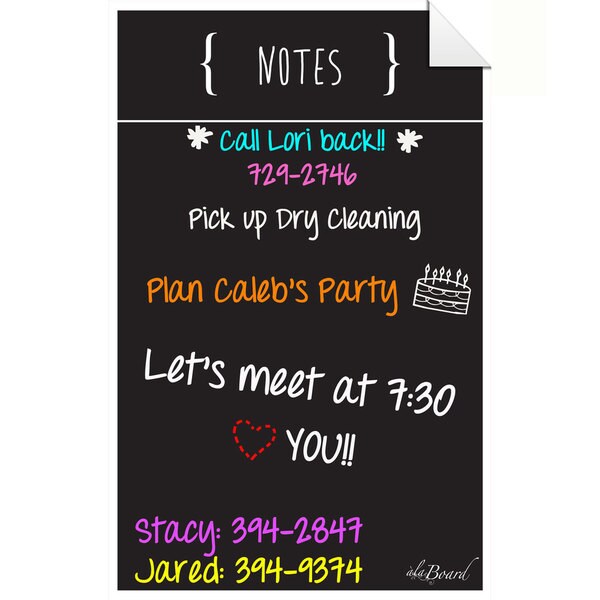 { NOTES }
* Call Lori back!! *
729-2746
Pick up Dry Cleaning
Plan Caleb's Party
Let's meet at 7:30
YOU!!
Stacy: 394-2847
Jared: 394-9374
àla Board